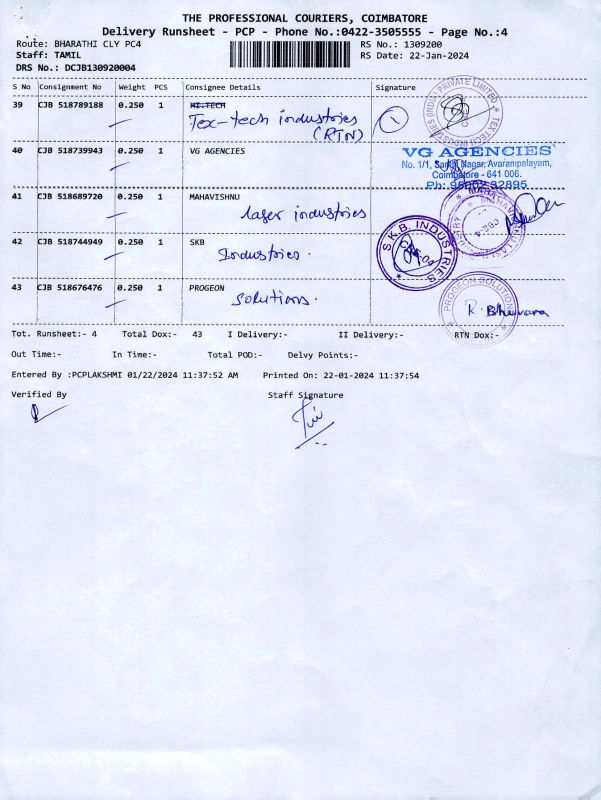 THE PROFESSIONAL COURIERS, COIMBATORE
Delivery Runsheet - PCP - Phone No.:0422-3505555 - Page No.:4
Route: BHARATHI CLY PC4 RS No.: 1309200
Staff: TAMIL RS Date: 22-Jan-2024
DRS No.: DCJB130920004
S No Consignment No Weight PCS Consignee Details Signature
39 CJB 518789188 0.250 1 HI.TECH
Tex-tech industries
(RTN)
TEX TECH INDUSTRIES (INDIA) PRIVATE LIMITED
40 CJB 518739943 0.250 1 VG AGENCIES
VG AGENCIES
No. 1/1, Nagar, Avarampalayam,
Coimbatore - 641 006.
Ph:
41 CJB 518689720 0.250 1 MAHAVISHNU
laser industries
42 CJB 518744949 0.250 1 SKB
Industries.
S.K.B. INDUSTRIES
43 CJB 518676476 0.250 1 PROGEON
Solutions.
PROGEON SOLUTIONS
R. Bhuvana
Tot. Runsheet:- 4 Total Dox:- 43 I Delivery:- II Delivery:- RTN Dox:-
Out Time:- In Time:- Total POD:- Delvy Points:-
Entered By :PCPLAKSHMI 01/22/2024 11:37:52 AM Printed On: 22-01-2024 11:37:54
Verified By Staff Signature